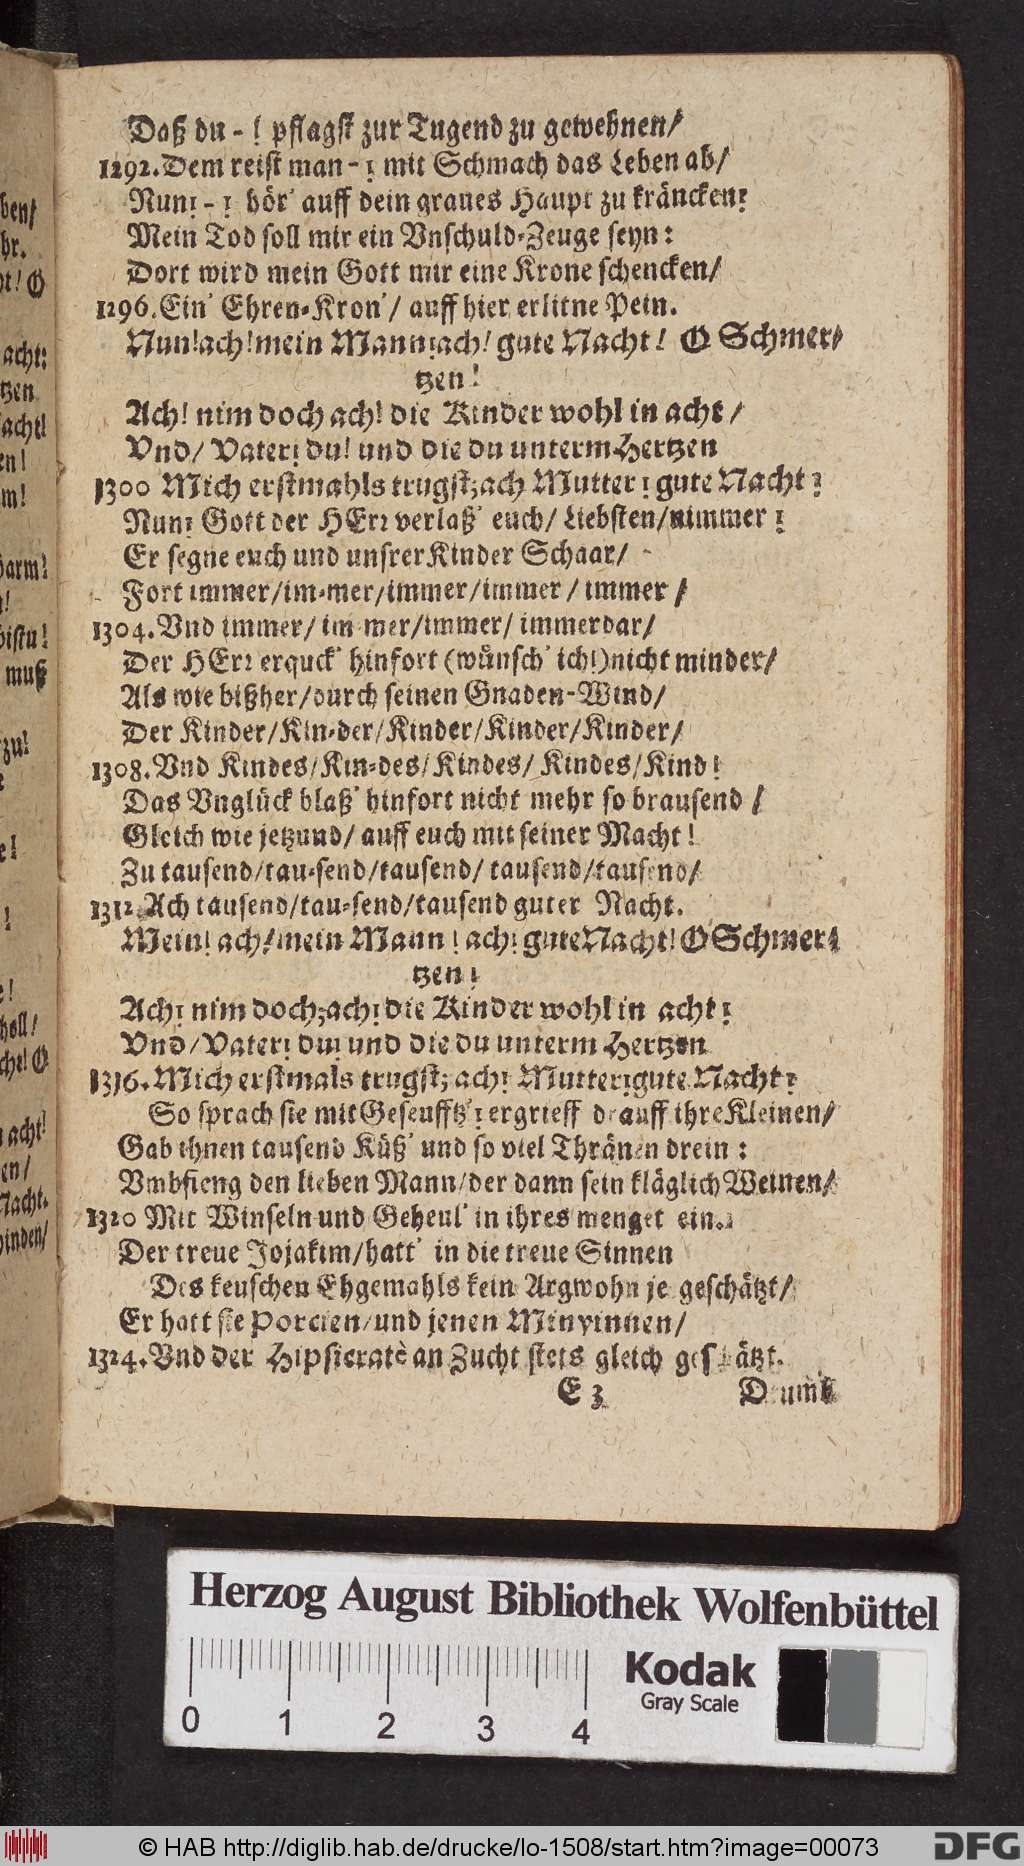 ben/
hr.
ht! O
acht:
tzen
acht!
en!
m!
darm!
n!
bistu!
muß
zu!
t
e!
!
e!
holl/
cht! O
acht!
en/
Nacht.
hinden/
Daß du - ! pflagst zur Tugend zu gewehnen/
1292. Dem reist man - ! mit Schmach das Leben ab/
Nun! - ! hör' auff dein graues Haupt zu kräncken!
Mein Tod soll mir ein Vnschuld-Zeuge seyn:
Dort wird mein Gott mir eine Krone schencken/
1296. Ein' Ehren-Kron'/ auff hier erlitne Pein.
Nun! ach! mein Mann! ach! gute Nacht! O Schmer-
tzen!
Ach! nim doch ach! die Kinder wohl in acht/
Vnd/ Vater! du! und die du unterm Hertzen
1300 Mich erstmahls trugst; ach Mutter! gute Nacht!
Nun! Gott der HErr verlaß' euch/ Liebsten/ nimmer!
Er segne euch und unsrer Kinder Schaar/
Fort immer/ im-mer/ immer/ immer/ immer/
1304. Vnd immer/ im mer/ immer/ immerdar/
Der HErr erquck' hinfort (wünsch' ich!) nicht minder/
Als wie bißher/ durch seinen Gnaden-Wind/
Der Kinder/ Kin-der/ Kinder/ Kinder/ Kinder/
1308. Vnd Kindes/ Kin-des/ Kindes/ Kindes/ Kind!
Das Vnglück blaß' hinfort nicht mehr so brausend/
Gleich wie jetzund/ auff euch mit seiner Macht!
Zu tausend/ tau-send/ tausend/ tausend/ tausend/
1312. Ach tausend/ tau-send/ tausend guter Nacht.
Mein! ach! mein Mann! ach! gute Nacht! O Schmer-
tzen!
Ach! nim doch; ach! die Kinder wohl in acht!
Vnd/ Vater! du! und die du unterm Hertzen
1316. Mich erstmals trugst; ach! Mutter! gute Nacht!
So sprach sie mit Geseufftz'! ergrieff drauff ihre Kleinen/
Gab ihnen tausend Küß' und so viel Thränen drein:
Vmbfieng den lieben Mann/ der dann sein kläglich Weinen/
1320 Mit Winseln und Geheul' in ihres menget ein.
Der treue Jojakim/ hatt' in die treue Sinnen
Des keuschen Ehgemahls kein Argwohn je geschätzt/
Er hatt sie Porcien/ und jenen Minyinnen/
1324. Vnd der Hipsicratè an Zucht stets gleich geschätzt.
E 3 Drumb
Herzog August Bibliothek Wolfenbüttel
0 1 2 3 4
Kodak
Gray Scale
© HAB http://diglib.hab.de/drucke/lo-1508/start.htm?image=00073
DFG